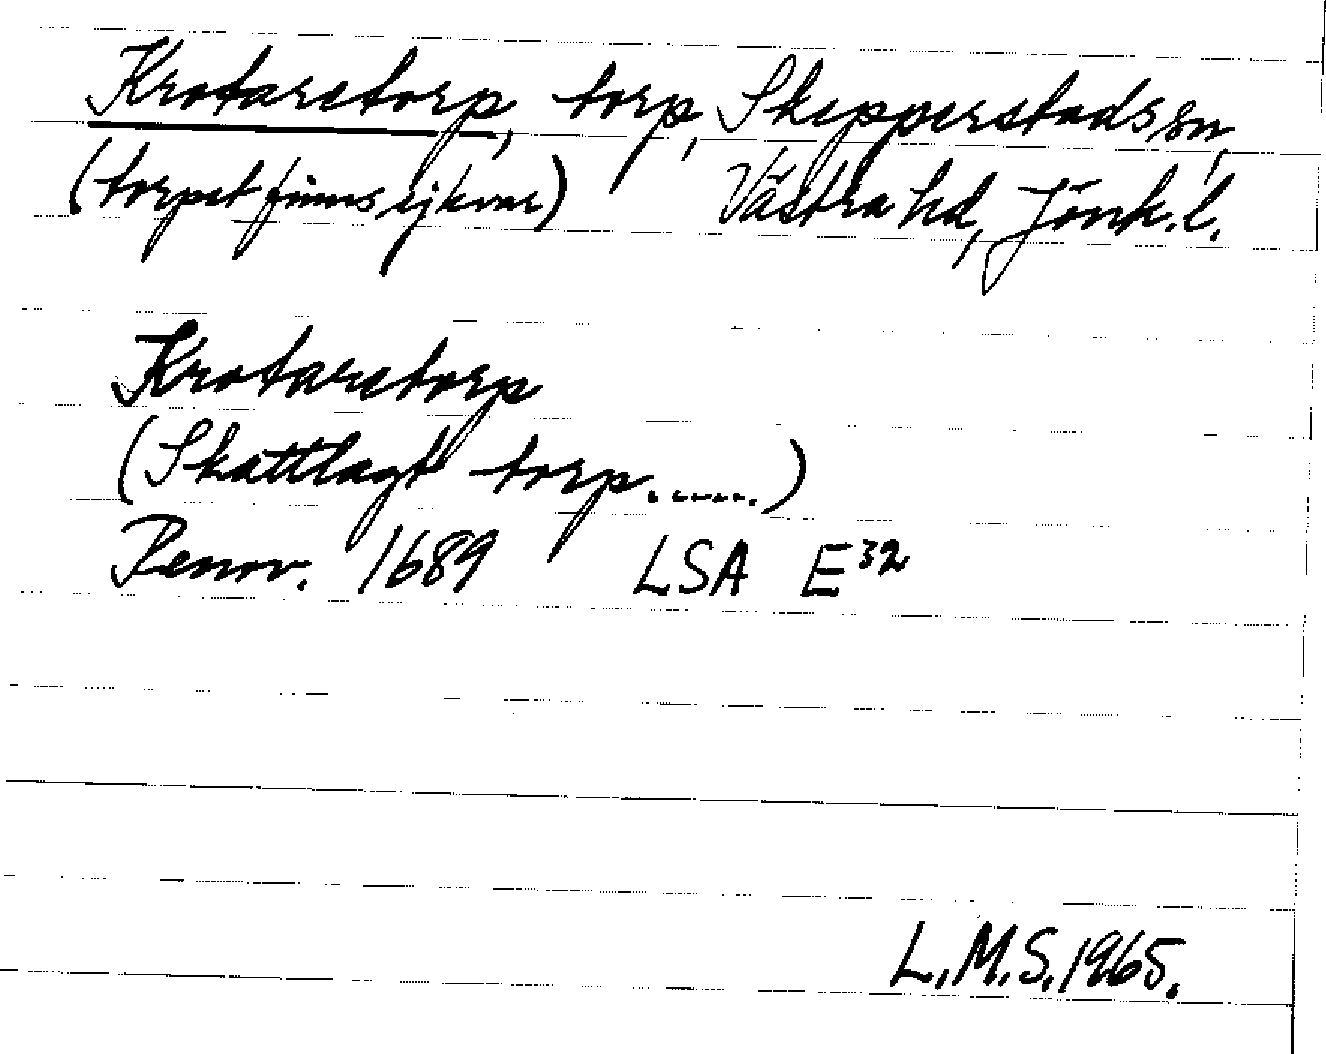 Krotaretorp, torp, Skepperstads sn,
(torpet finns ej kvar) Västra hd, Jönk. l.
Krotaretorp
(Skattlagt torp.......)
Renov. 1689 LSA E32
L.M.S. 1965.